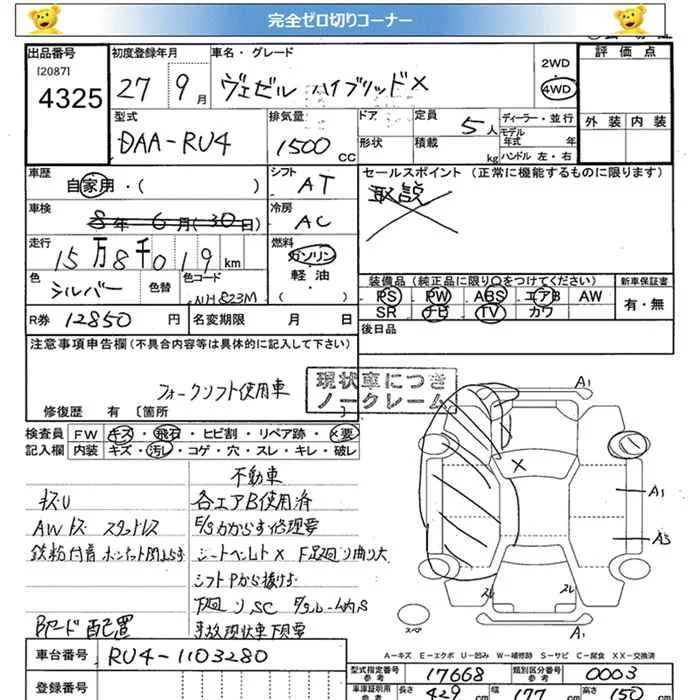 完全ゼロ切りコーナー
出品番号
[2087]
4325
初度登録年月
27 9月
車名・グレード
ヴェゼル ハイブリッドX
2WD
4WD
評価点
外装 内装
型式
DAA-RU4
排気量
1500CC
ドア
形状
定員
5人
積載
kg
ディーラー・並行
モデル
年式 年
ハンドル 左・右
車歴
自家用・( )
シフト
AT
セールスポイント (正常に機能するものに限ります)
取説
車検
8年6月(30日)
冷房
AC
走行
15万8千019km
燃料
ガソリン
軽・油
( )
色
シルバー
色替
色コード
NH823M
装備品(純正品に限り○をつけてください)
PS PW ABS エアB AW
SR ナビ TV カワ
新車保証書
有・無
R券 12850円
名変期限 月 日
後日品
注意事項申告欄(不具合内容等は具体的に記入して下さい)
フォークリフト使用車
修復歴 有 [箇所 ]
現状車につき
ノークレーム
検査員
記入欄
FW キズ・飛石・ヒビ割・リペア跡・×要
内装 キズ・汚レ・コゲ・穴・スレ・キレ・破レ
不動車
キズU
各エアB使用済
AWキズ スタットレス
E/Sかからず修理要
鉄粉付着 ボンネット閉まらず
シートベルト× F足廻り曲り大
シフトPから抜けず
下廻りSC
Bカード配置
事故現状車下見要
A1
A1
A3
X
スペア
A-キズ E-エクボ U-凹み W-補修跡 S-サビ C-腐食 XX-交換済
車台番号 RU4-1103280
登録番号
型式指定番号
参考
17668
類別区分番号
参考
0003
車庫証明用
参考
長さ 429cm 幅 177cm 高さ 150cm